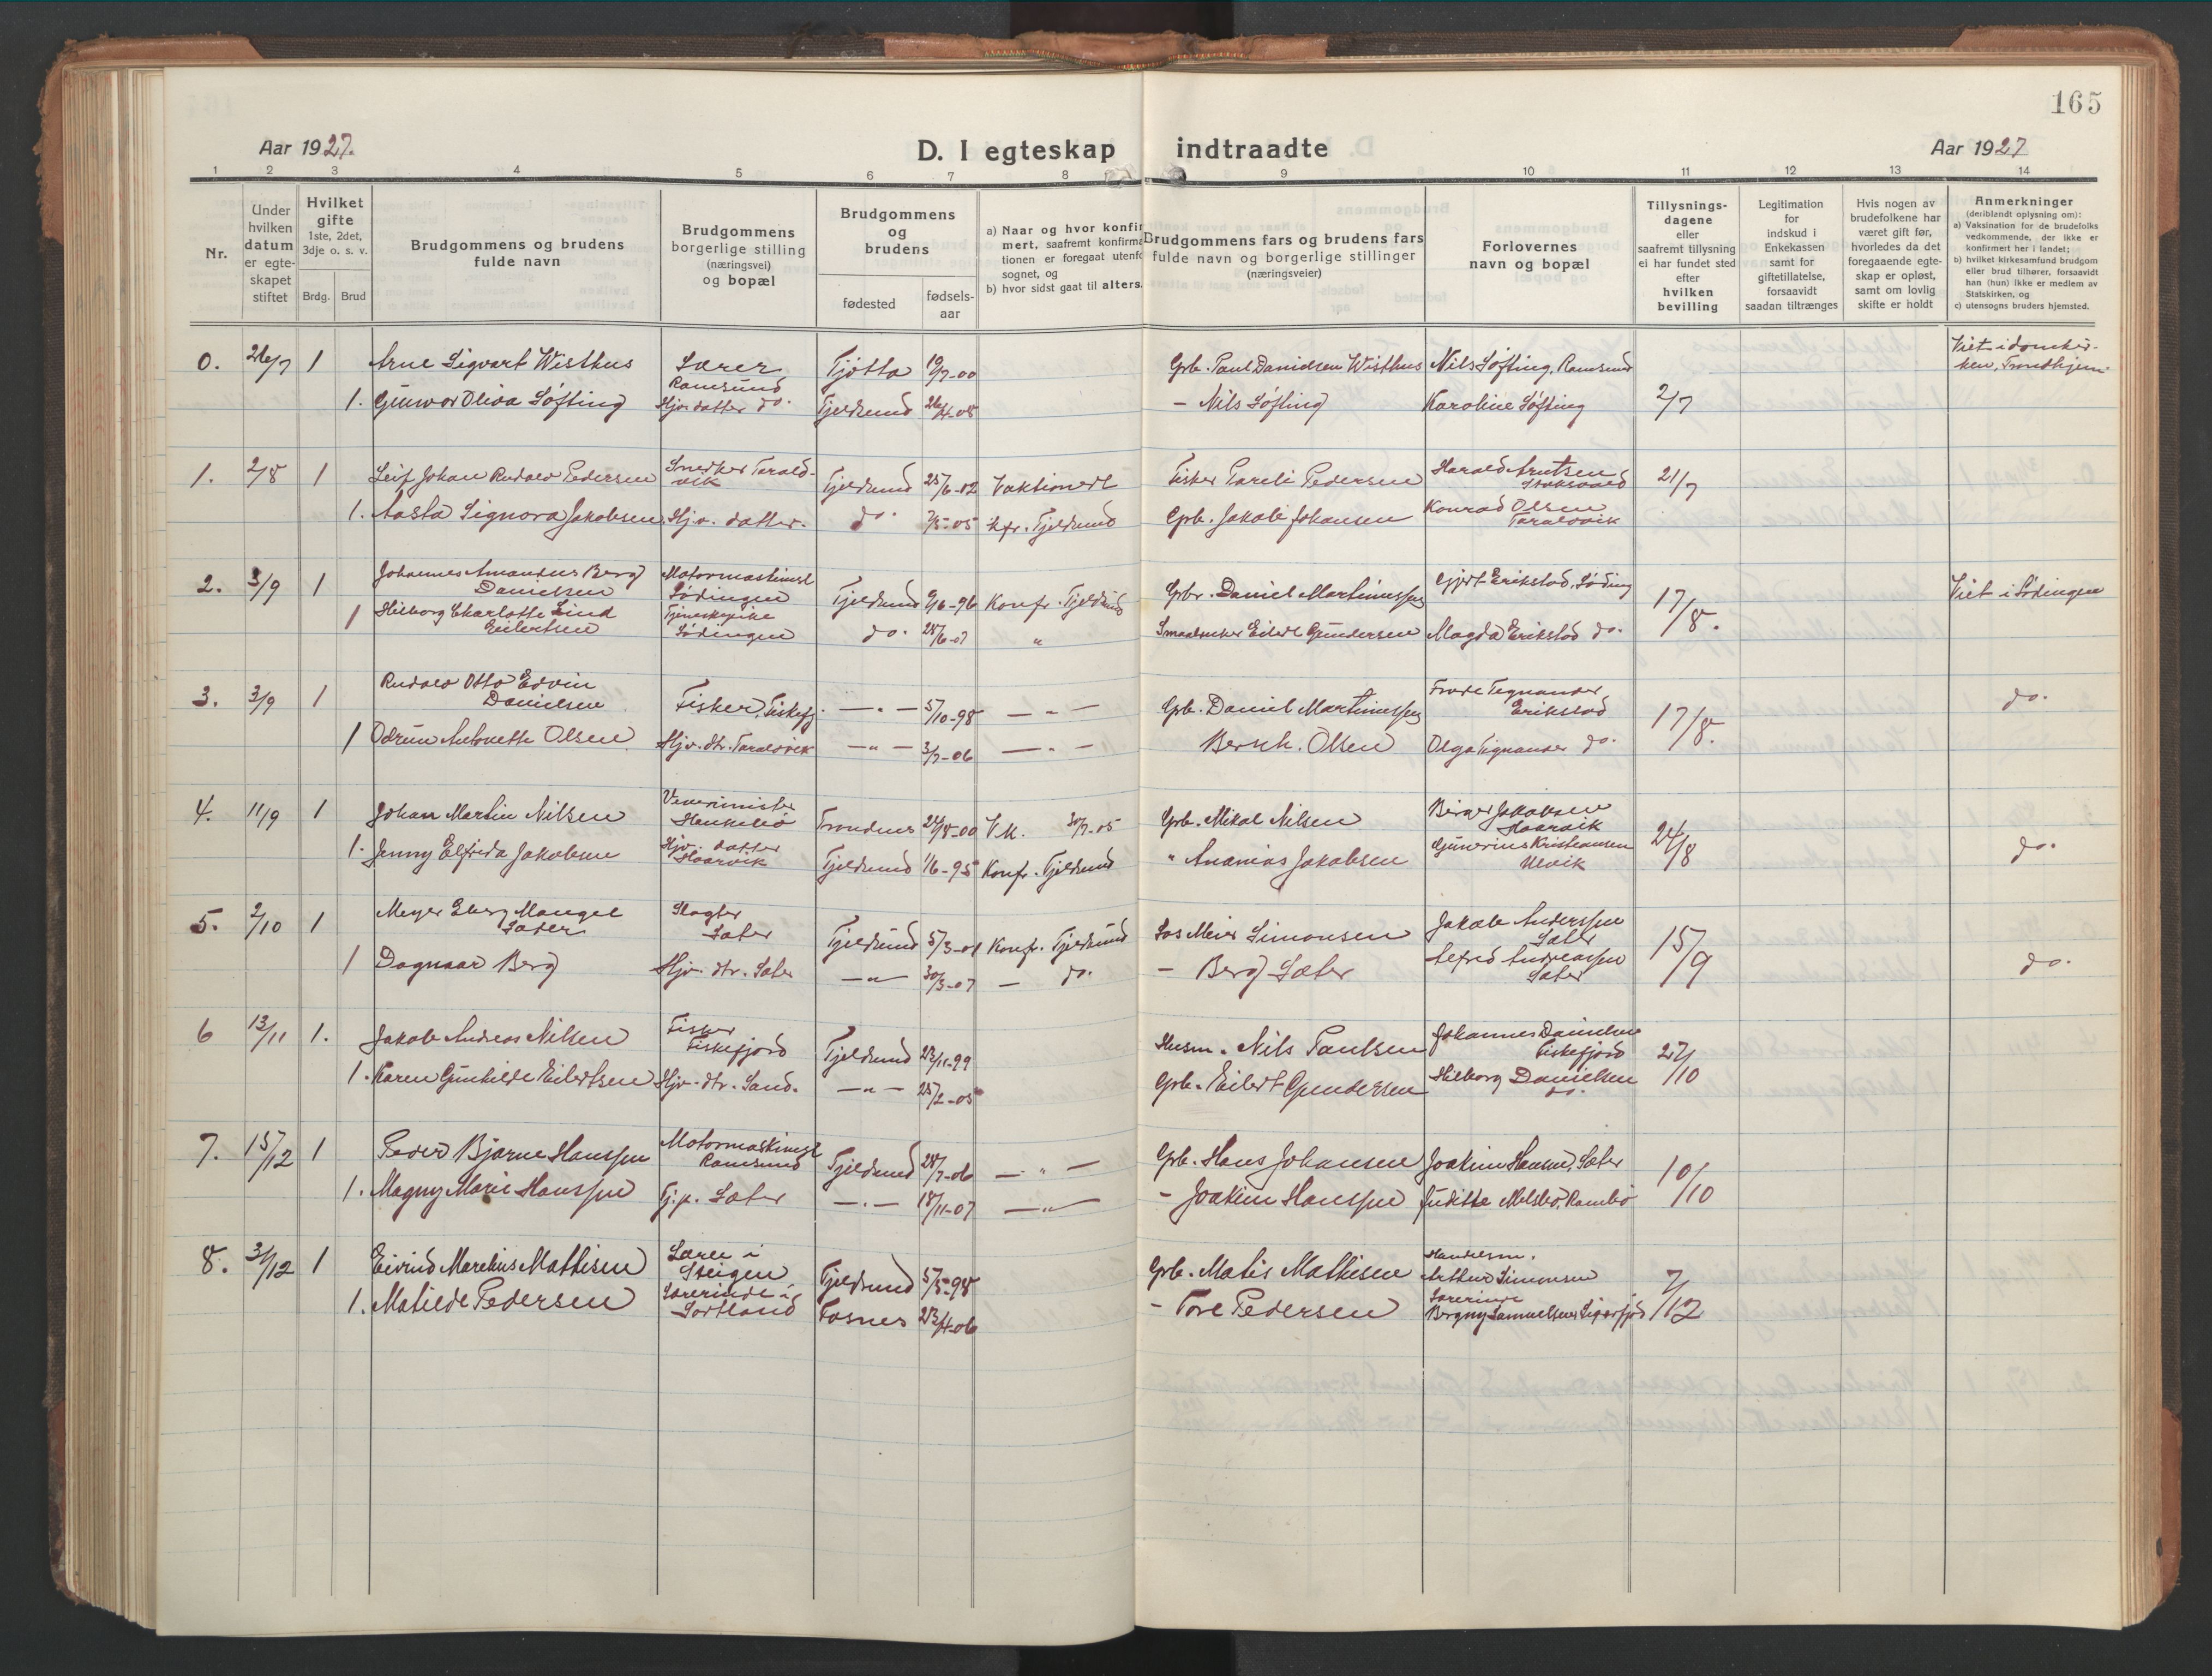 165
Aar 1927.
D. I egteskap indtraadte
Aar 1927
1 2 3 4 5 6 7 8 9 10 11 12 13 14
Nr.
Under hvilken datum er egteskapet stiftet
Hvilket gifte 1ste, 2det, 3dje o. s. v.
Brdg. Brud
Brudgommens og brudens fulde navn
Brudgommens borgerlige stilling (næringsvei) og bopæl
Brudgommens og brudens
fødested
fødsels-aar
a) Naar og hvor konfir
mert, saafremt konfirma
tionen er foregaat utenfo
sognet, og
b) hvor sidst gaat til alters.
Brudgommens fars og brudens fars
fulde navn og borgerlige stillinger
(næringsveier)
Forlovernes
navn og bopæl
Tillysnings-
dagene
eller
saafremt tillysning
ei har fundet sted
efter
hvilken
bevilling
Legitimation
for
indskud i
Enkekassen
samt for
giftetillatelse,
forsaavidt
saadan tiltrænges
Hvis nogen av
brudefolkene har
været gift før,
hvorledes da det
foregaaende egte-
skap er opløst,
samt om lovlig
skifte er holdt
Anmerkninger
(deriblandt oplysning om):
a) Vaksination for de brudefolks
vedkommende, der ikke er
konfirmert her i landet;
b) hvilket kirkesamfund brudgom
eller brud tilhører, forsaavidt
han (hun) ikke er medlem av
Statskirken, og
c) utensogns bruders hjemsted.
0. 26/7 1 Arne Sigvart Wisthus Lærer Ramsund Tjøtta 19/7-00 Grb. Paul Danielsen Wisthus Nils Søfting, Ramsund Viet i domkir-
ken, Trondhjem
1. Gunvor Oliva Søfting Hjv. datter do. Tjeldsund 26/4-08 - Nils Søfting Karoline Søfting 2/7
1. 2/8 1 Leif Johan Rudolv Pedersen Snedker Tarald-
vik Tjeldsund 25/6-02 Vaktionert Fisker Pareli Pedersen Harald Arntsen 21/7
1. Aasta Signora Jakobsen Hjv. datter. do. 7/5-05 kfr. Tjeldsund Grb. Jakob Johansen Konrad Olsen
Taraldvik
2. 3/9 1 Johannes Amandus Berg
Danielsen Motormaskinist
Lødingen Tjeldsund 9/6-96 Konfr. Tjeldsund Grbr. Daniel Martinussen Gjert Erikstad, Løding 17/8. Viet i Lødingen
1 Hilborg Charlotte Lind
Eilertsen Tjenestepike
Lødingen do. 28/6-07 " Smaabruker Eilert Gundersen Magda Erikstad do.
3. 3/9 1 Rudolv Otto Edvin
Danielsen Fisker, Fiskefj. -"- 5/10-98 -"- Grb. Daniel Martinussen Frode Tegnander
Erikstad 17/8. do.
1 Odrun Antonette Olsen Hjv. dtr. Taraldvik -"- 3/7-06 -"- Bernh. Olsen Olga Tegnander do.
4. 11/9 1 Johan Martin Nilsen Trondenes 24/8-00 V.k. 30/7-05 Grb. Mikal Nilsen Birger Jakobsen
Haarvik 24/8
1. Jenny Elfrida Jakobsen Hjv. datter
Haarvik Tjeldsund 1/6-95 Konfr. Tjeldsund " Ananias Jakobsen Gunerius Kristiansen
Ulvik do.
5. 2/10 1 Meyer Eberg Mangel
Sæter Slagter
Sæter Tjeldsund 5/3-01 Konfr. Tjeldsund Los Meier Simonsen Jakob Anderssen
Sæter 15/9
1 Dagnaar Berg Hjv. dtr. Sæter -"- 30/3-07 - do. - Berg Sæter Alfred Andreassen
Sæter do.
6 13/11 1. Jakob Andreas Nilsen Fisker
Fiskefjord Tjeldsund 23/11-99 Husm. Nils Paulsen Johannes Danielsen
Fiskefjord 27/10
1. Karen Gunhilde Eilertsen Hjv. dtr. Sand. -"- 25/2-05 Grb. Eilert Gundersen Hilborg Danielsen
do.
7. 15/12 1 Peder Bjarne Hanssen Motormaskinist
Ramsund Tjeldsund 28/7-06 -"- Grb. Hans Johansen Joakim Hansen, Sæter 10/10
1. Magny Marie Hanssen Tj.p. Sæter -"- 18/11-07 -"- - Joakim Hanssen Juditte Melsbø, Rambø
8. 31/12 1 Eivind Marelius Mathisen Lærer i
Steigen Tjeldsund 5/5-98 Grb. Matis Mathisen Handelsm.
Arthur Simonsen 7/12
1. Matilde Pedersen Lærerinde i
Sortland Fosnes 23/4-06 - Tore Pedersen Lærerinde
Bergny Samuelsen Sigerfjord